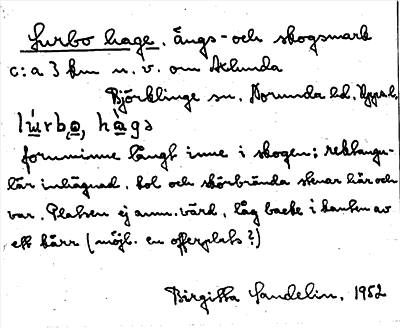 Lurbo hage. ängs- och skogsmark
c:a 3 km n. v. om Aklunda
Björklinge sn, Norunda hd, Upps. l.
lúrbo, hàga
fornminne långt inne i skogen; rektangu-
lär inhägnad, kol och skörbrända stenar här och
var. Platsen ej anm.värd, låg backe i kanten av
ett kärr (möjl. en offerplats?)
Birgitta Sandelin, 1952